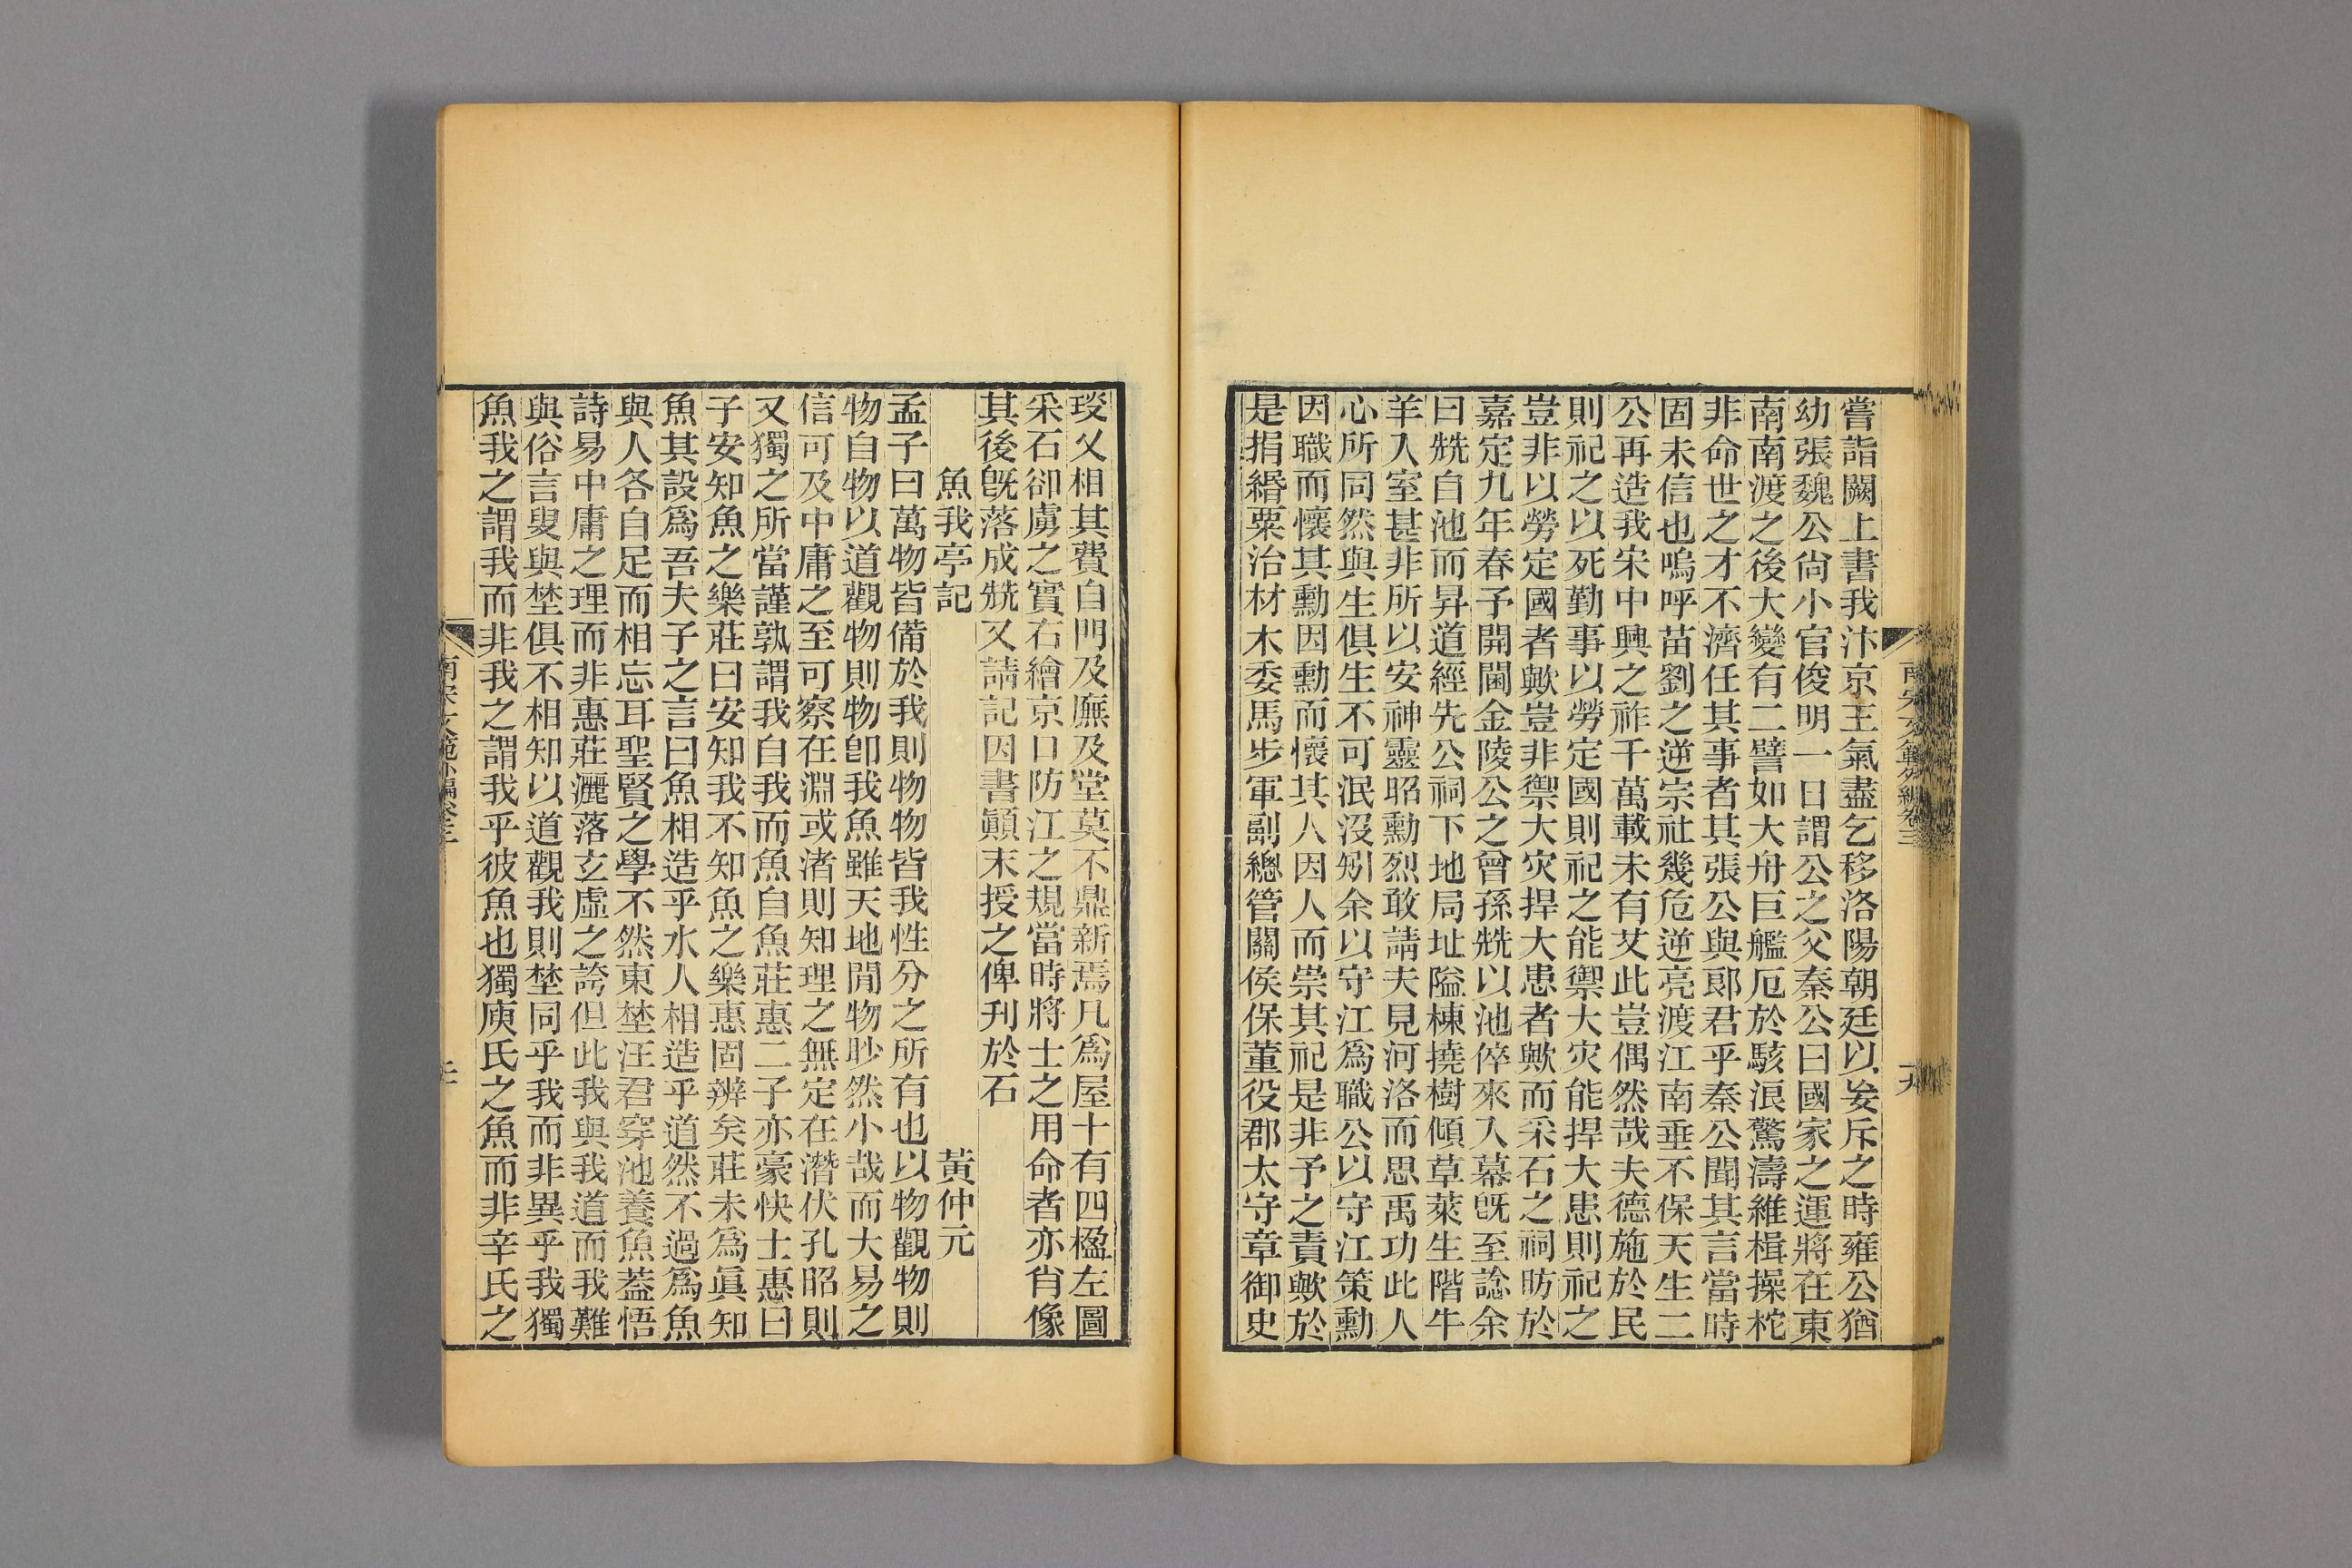 嘗詣闕上書我汴京王氣盡乞移洛陽朝廷以妄斥之時雍公猶
幼張魏公尙小官俊明一日謂公之父秦公曰國家之運將在東
南南渡之後大變有二譬如大舟巨艦厄於駭浪驚濤維楫操柁
非命世之才不濟任其事者其張公與郞君乎秦公聞其言當時
固未信也嗚呼苗劉之逆宗社幾危逆亮渡江南垂不保天生二
公再造我宋中興之祚千萬載未有艾此豈偶然哉夫德施於民
則祀之以死勤事以勞定國則祀之能禦大灾能捍大患則祀之
豈非以勞定國者歟豈非禦大灾捍大患者歟而采石之祠昉於
嘉定九年春予開閫金陵公之曾孫兟以池倅來入幕旣至諗余
曰兟自池而昇道經先公祠下地局址隘棟撓樹傾草萊生階牛
羊入室甚非所以安神靈昭勳烈敢請夫見河洛而思禹功此人
心所同然與生俱生不可泯沒矧余以守江爲職公以守江策勳
因職而懷其勳因勳而懷其人因人而崇其祀是非予之責歟於
是捐緡粟治材木委馬步軍副總管關侯保董役郡太守章御史
琰乂相其費自門及廡及堂莫不鼎新焉凡爲屋十有四楹左圖
采石卻虜之實右繪京口防江之規當時將士之用命者亦肖像
其後旣落成兟又請記因書顚末授之俾刋於石
魚我亭記 黃仲元
孟子曰萬物皆備於我則物物皆我性分之所有也以物觀物則
物自物以道觀物則物卽我魚雖天地閒物眇然小哉而大易之
信可及中庸之至可察在淵或渚則知理之無定在潛伏孔昭則
又獨之所當謹孰謂我自我而魚自魚莊惠二子亦豪快士惠曰
子安知魚之樂莊曰安知我不知魚之樂惠固辨矣莊未爲眞知
魚其設爲吾夫子之言曰魚相造乎水人相造乎道然不過爲魚
與人各自足而相忘耳聖賢之學不然東埜汪君穿池養魚蓋悟
詩易中庸之理而非惠莊灑落玄虛之誇但此我與我道而我難
與俗言叟與埜俱不相知以道觀我則埜同乎我而非異乎我獨
魚我之謂我而非我之謂我乎彼魚也獨庾氏之魚而非辛氏之